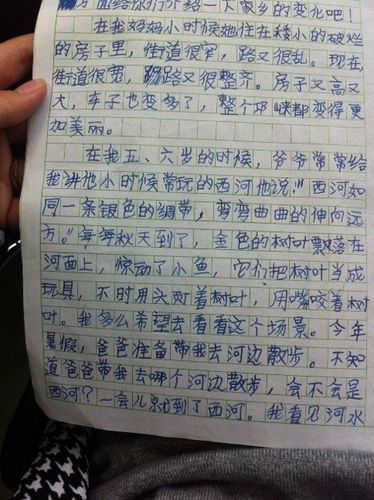 方面给你们介绍一下家乡的变化吧！
在我妈妈小时候她住在矮小的破烂
的房子里，街道很窄，路又很乱。现在
街道很宽，路又很整齐。房子又高又
大，车子也变多了，整个邛崃都变得更
加美丽。
在我五、六岁的时候，爷爷常常给
我讲他小时候常玩的西河他说："西河如
同一条银色的绸带，弯弯曲曲的伸向远
方。"每每秋天到了，金色的树叶飘落在
河面上，惊动了小鱼，它们把树叶当成
玩具，不时用头顶着树叶，用嘴咬着树
叶。我多么希望去看看这个场景。今年
暑假，爸爸准备带我去河边散步。不知
道爸爸带我去哪个河边散步，会不会是
西河？一会儿就到了西河。我看见河水